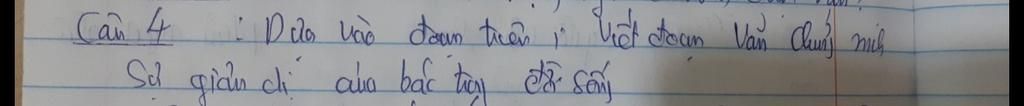 Câu 4 : Dựa vào đoạn trên, viết đoạn văn chứng minh
Sự giản dị của bác trong đời sống